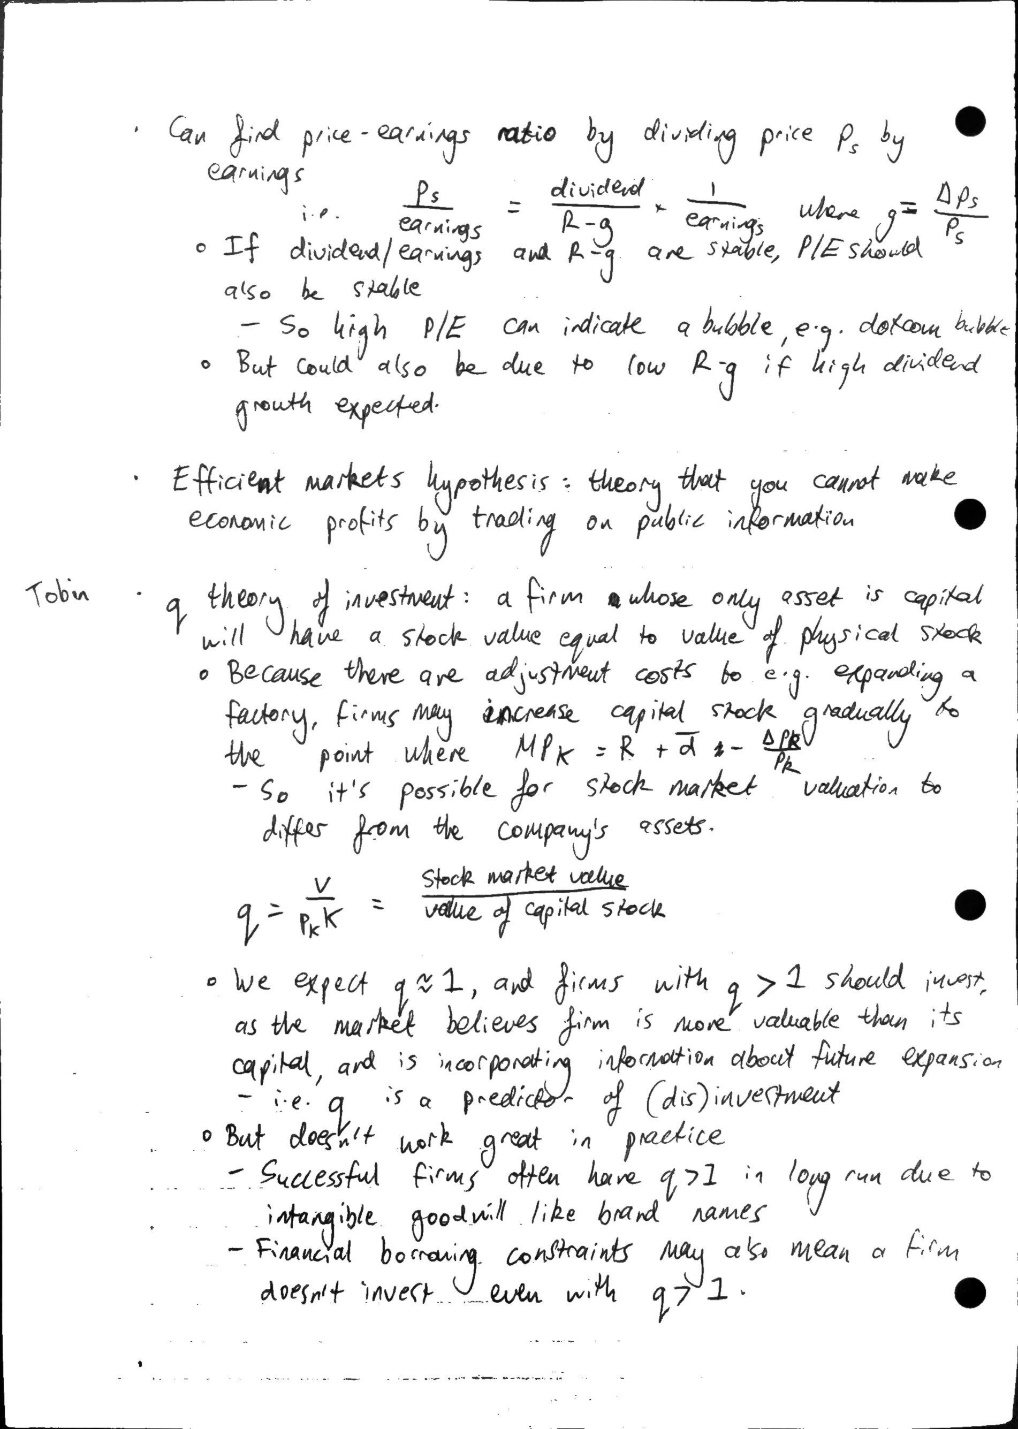 · Can find price-earnings ratio by dividing price Ps by
earnings
i.e. Ps/earnings = dividend/R-g × 1/earnings where g = ΔPs/Ps
∘ If dividend/earnings and R-g are stable, P/E should
also be stable
- So high P/E can indicate a bubble, e.g. dotcom bubble
∘ But could also be due to low R-g if high dividend
growth expected.
· Efficient markets hypothesis: theory that you cannot make
economic profits by trading on public information
Tobin · q theory of investment: a firm whose only asset is capital
will have a stock value equal to value of physical stock
∘ Because there are adjustment costs to e.g. expanding a
factory, firms may increase capital stock gradually to
the point where MPK = R + d̄ - ΔPk/Pk
- So it's possible for stock market valuation to
differ from the company's assets.
q = V/PkK = Stock market value/value of capital stock
∘ We expect q ≈ 1, and firms with q > 1 should invest,
as the market believes firm is more valuable than its
capital, and is incorporating information about future expansion
- i.e. q is a predictor of (dis)investment
∘ But doesn't work great in practice
- Successful firms often have q>1 in long run due to
intangible goodwill like brand names
- Financial borrowing constraints may also mean a firm
doesn't invest even with q > 1.